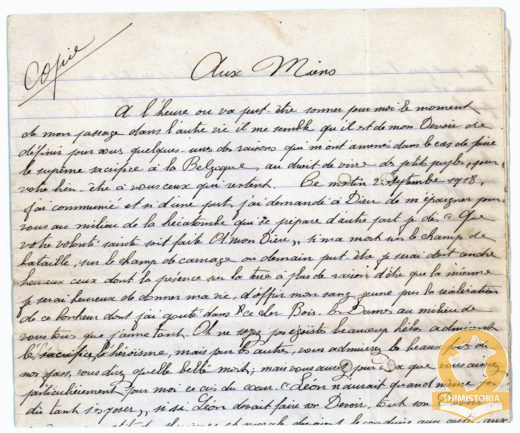 Copie
Aux Miens
A l'heure ou va peut-être sonner pour moi le moment
de mon passage dans l'autre vie il me semble qu'il est de mon Devoir de
définir pour vous quelques unes des raisons qui m'ont amené dans le cas de faire
le suprême sacrifice à la Belgique, au droit de vivre des petits peuples, pour
votre bien-être à vous ceux qui restent. Ce matin 2 septembre 1918,
j'ai communié et si d'une part, j'ai demandé à Dieu de m'épargner pour
vous au milieu de la hécatombe qui se prépare d'autre part je dis "Que
votre volonté sainte soit faite O mon Dieu", si ma mort sur le champ de
bataille, sur le champ de carnage ou demain peut être je serai doit rendre
heureux ceux dont la présence sur la terre a plus de raison d'être que la mienne
je serai heureux de donner ma vie, d'offrir mon sang jeune pour la réalisation
de ce bonheur dont j'ai gouté dans Bois au milieu de
vous tous que j'aime tant. Oh ne soyez pas égoïstes beaucoup hélas admirent
le sacrifice, le héroïsme, mais pour les autres, vous admirerez les beaux
vous direz quelle belle mort, mais vous aurez peur que vous aimez
particulièrement. Pour moi ce cri du cœur "Léon n'aurait quand même pas
dû tant s'exposer", si Léon devait faire son Devoir. C'est son
SHIMISTORIA